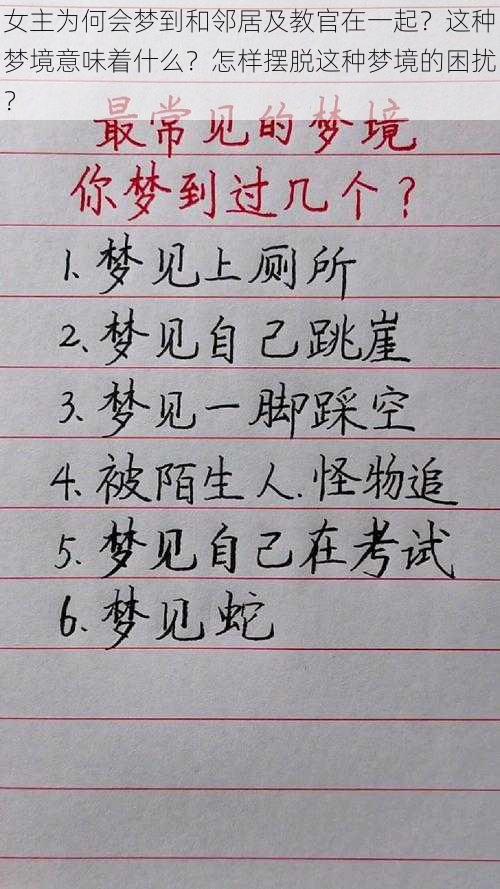 女主为何会梦到和邻居及教官在一起？这种
梦境意味着什么？怎样摆脱这种梦境的困扰
？
最常见的梦境
你梦到过几个？
1、梦见上厕所
2、梦见自己跳崖
3、梦见一脚踩空
4、被陌生人.怪物追
5、梦见自己在考试
6、梦见蛇